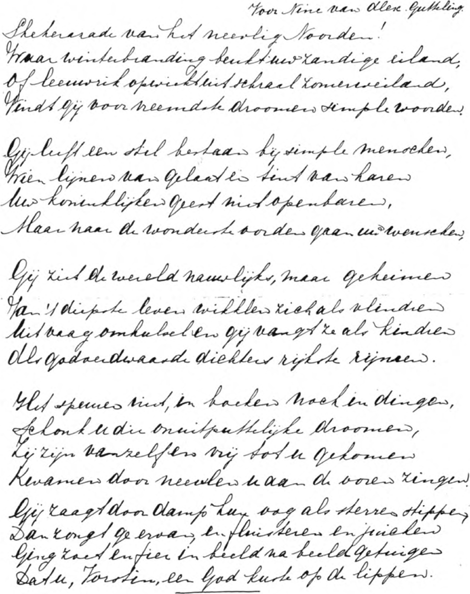 Voor Nine van der Schaaf. Alex. Gutteling
Sheherazade van het neevlig Noorden!
Waar winterbranding beukt uw zandige eiland,
Of leeuwrik opwiekt uit schraal zomerweiland,
Vindt gij voor vreemdste droomen simple woorden.
Gij leeft een stil bestaan bij simple menschen,
Wien lijnen van gelaat en tint van haren
Uw koninklijken geest niet openbaren,
Maar naar de wonderste oorden gaan uw wenschen,
Gij ziet de wereld nauwlijks, maar geheimen
Van 't diepste leven wikklen zich als vlindren
Uit vaag omhulsel en gij vangt ze als kindren
Als godvoedwaarde dichters rijkste rijmen.
Het speuren niet, in boeken noch in dingen,
Schonk u die onuitputtelijke droomen,
Zij zijn vanzelf en vrij tot u gekomen
Kwamen door neevlen u aan de ooren zingen,
Gij zaagt door damp hun oog als sterren stippen,
Dan zongt ge ervan, en fluisteren en juichen
Ging zoet en fier in beeld na beeld getuigen
Dat u, Vorstin, een God kuste op de lippen.